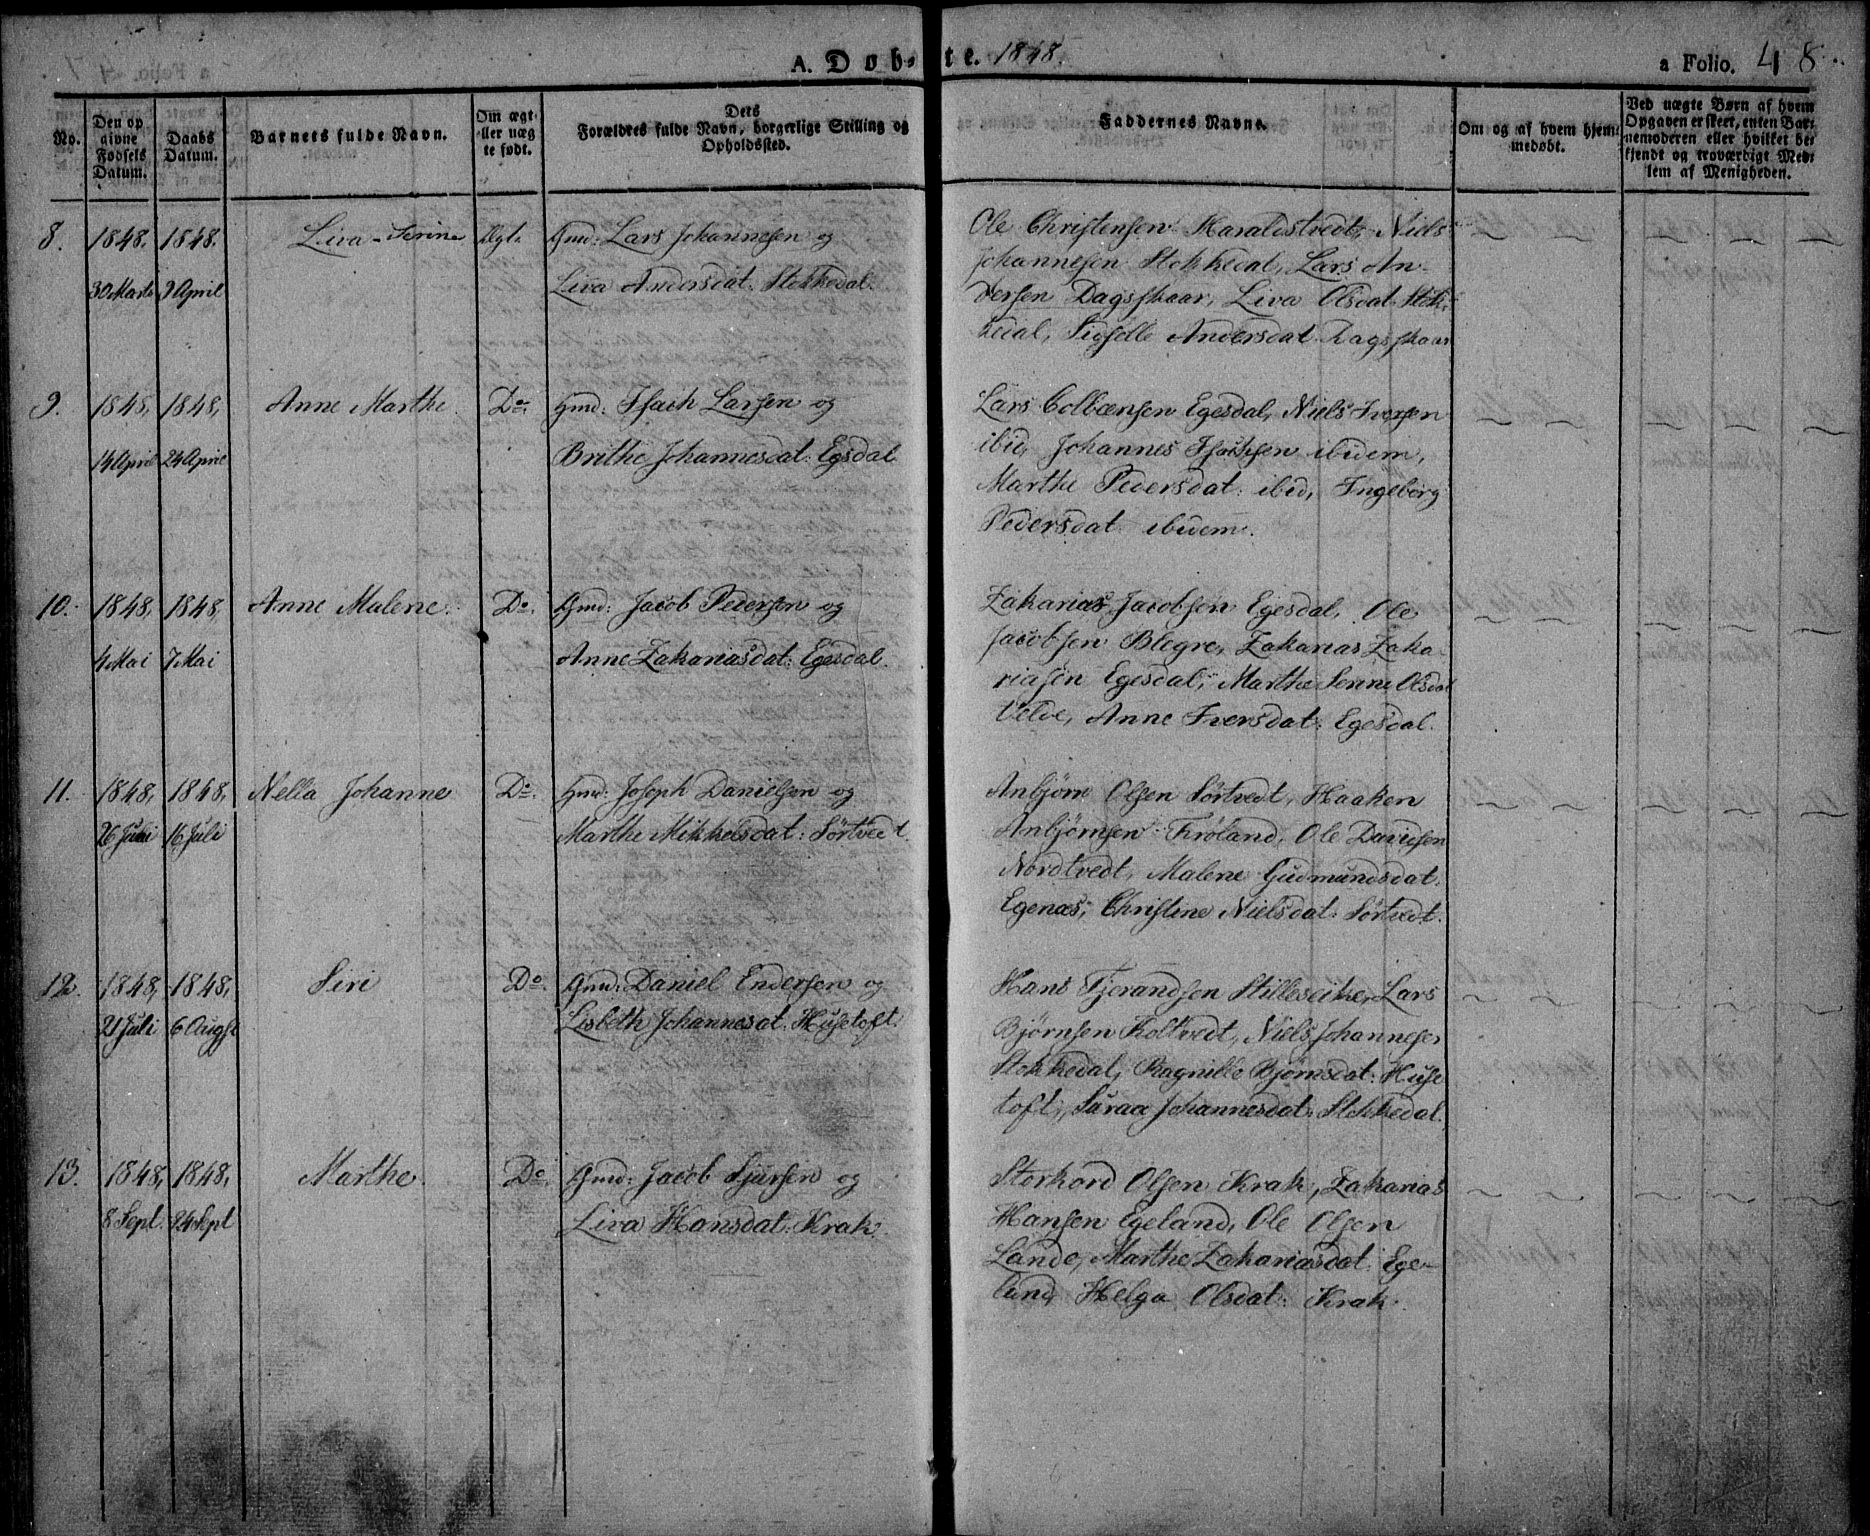 A. Døbte. 1848. a Folio. 48.
No. | Den opgivne Fødsels Datum. | Daabs Datum. | Barnets fulde Navn. | Om ægte eller uægte født. | Dets Forældres fulde Navn, borgerlige Stilling og Opholdssted. | Faddernes Navne. | Om og af hvem hjemmedøbt. | Ved uægte Børn af hvem Opgaven er skeet, enten Barnemoderen eller hvilket bekjendt og troværdigt Medlem af Menigheden.
8. 1848. 1848. Liva Serine Ægt. Gmd: Lars Johannesen og
30 Marts 9 April Liva Andersdat: Stokkedal.
Ole Christensen Haraldstvedt, Niels
Johannesen Stokkedal, Lars An-
dersen Dagsskaar, Liva Olsdat: Stok-
kedal, Sidselle Andersdat. Dagsskaar
9. 1848, 1848, Anne Marthe. Do. Gmd: Isach Larsen og
14 April 24 April Brithe Johannesdat: Egsdal
Lars Colbænsen Egesdal, Niels Iversen
ibid, Johannes Isachsen ibidem,
Marthe Pedersdat: ibid, Ingeborg
Pedersdat ibidem.
10. 1848, 1848, Anne Malene. Do. Gmd: Jacob Pedersen og
4 Mai 7 Mai Anne Zakariasdat: Egesdal.
Zakarias Jacobsen Egesdal, Ole
Jacobsen Blegre, Zakarias Zaka-
riasen Egesdal, Marthe Serine Olsdat
Velde, Anne Iversdat: Egesdal.
11. 1848, 1848, Nella Johanne Do. Gmd: Joseph Danielsen og
26 Juni 16 Juli Marthe Mikkelsdat: Sörtvedt
Anbjörn Olsen Sörtvedt, Haaken
Anbjörnsen Frøland, Ole Davidsen
Nordtvedt, Malene Gudmundsdat.
Egenæs, Christene Nielsdat: Sörtvedt.
12. 1848, 1848, Siri Do. Gmd: Daniel Endersen og
21 Juli 6 Augst Lisbeth Johannesdat: Husetoft.
Hans Tjerandsen Stilleseike, Lars
Björnsen Holtvedt, Niels Johannesen
Stokkedal, Ragnille Björnsdat: Huse
toft, Suraa Johannesdat: Stokkedal.
13. 1848, 1848, Marthe. Do. Gmd: Jacob Sjursen og
8 Sept. 24 Sept Liva Hansdat: Krak.
Storkord Olsen Krak, Zakarias
Hansen Egeland, Ole Olsen
Lande, Marthe Zakariasdat: Ege-
land, Helga Olsdat: Krak.